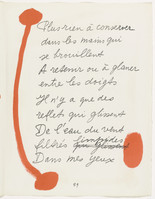 Plus rien à conserver
dans les mains qui
se brouillent
A retenir ou à glaner
entre les doigts
Il n'y a que des
reflets qui glissent
De l'eau du vent
filtrés limpides
Dans mes yeux